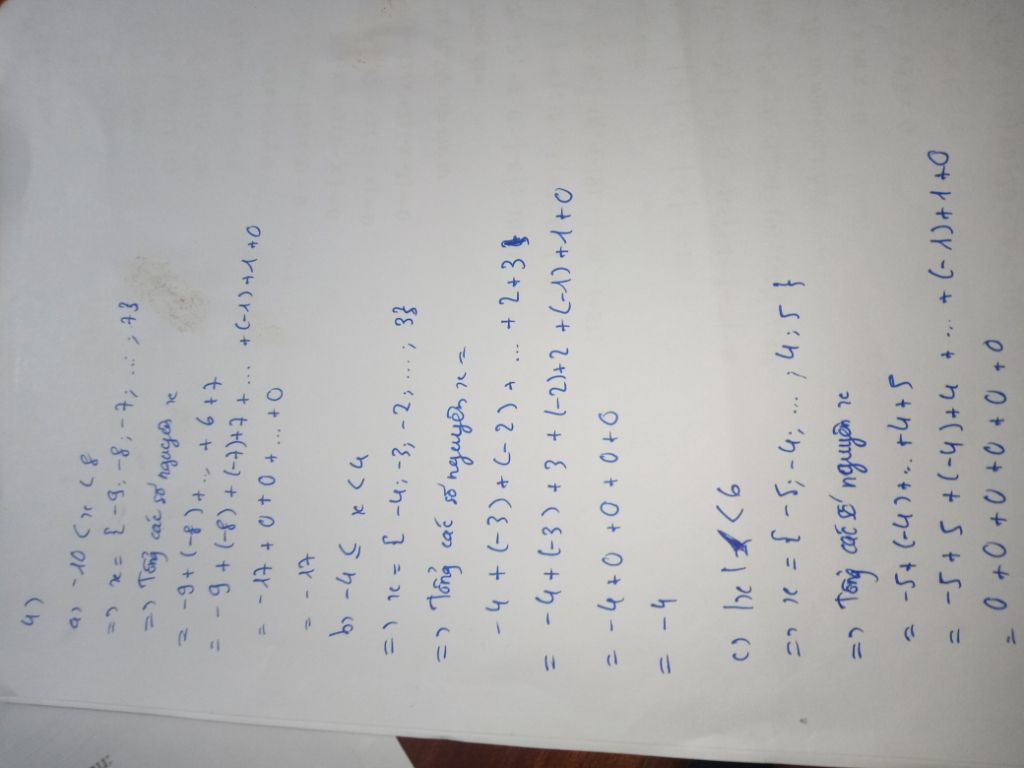 4)
a) -10 < x < 8
=> x = { -9; -8; -7; ...; 7}
=> Tổng các số nguyên x
= -9 + (-8) + ... + 6 + 7
= -9 + (-8) + (-7) + 7 + ... + (-1) + 1 + 0
= -17 + 0 + 0 + ... + 0
= -17
b) -4 ≤ x < 4
=> x = { -4; -3; -2; ...; 3}
=> Tổng các số nguyên x =
-4 + (-3) + (-2) + ... + 2 + 3
= -4 + (-3) + 3 + (-2) + 2 + (-1) + 1 + 0
= -4 + 0 + 0 + 0 + 0
= -4
c) |x| < 6
=> x = { -5; -4; ...; 4; 5 }
=> Tổng các số nguyên x
= -5 + (-4) + ... + 4 + 5
= -5 + 5 + (-4) + 4 + ... + (-1) + 1 + 0
= 0 + 0 + 0 + 0 + 0